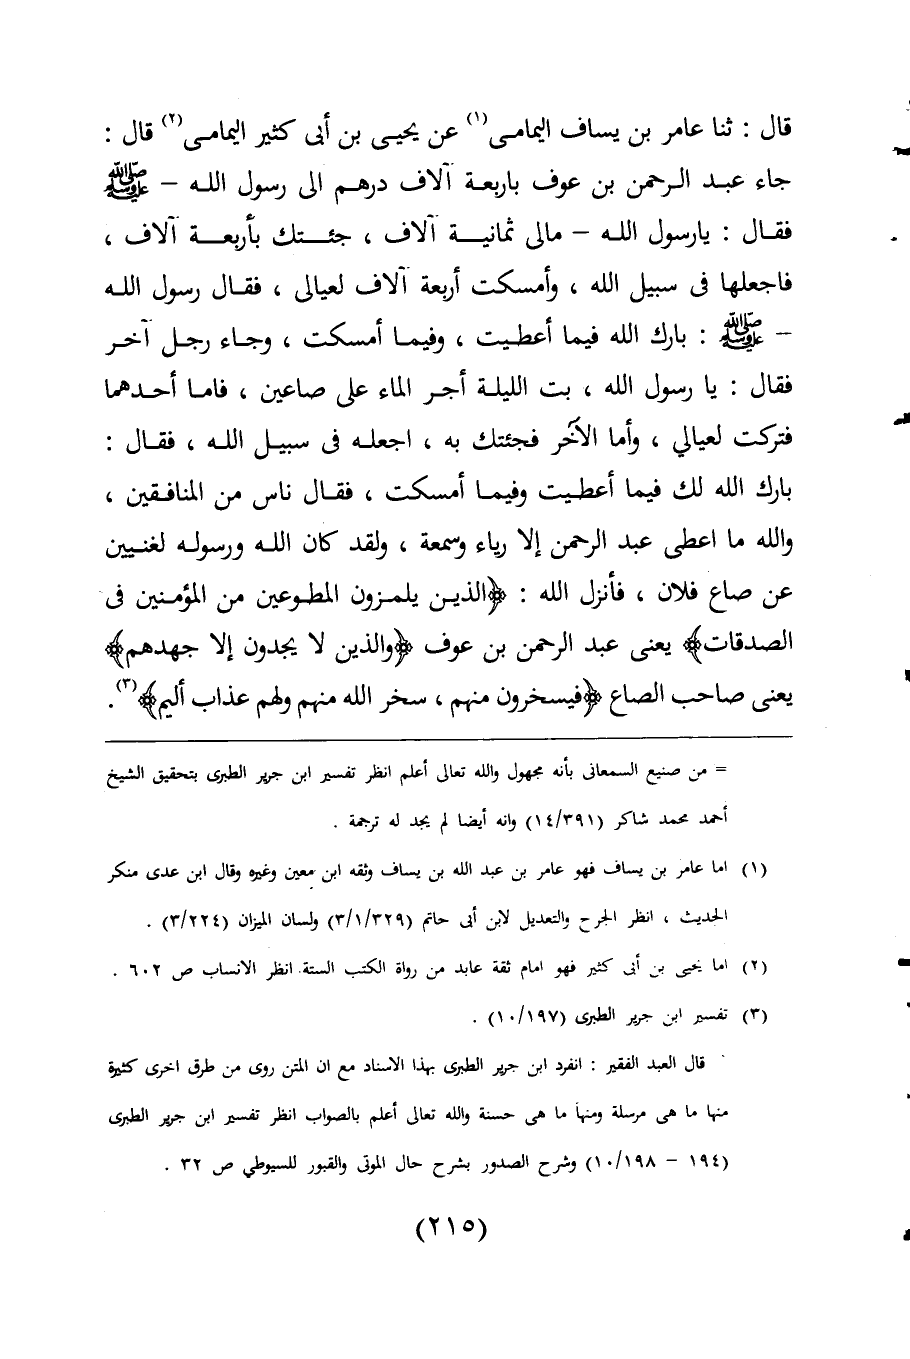 قال : ثنا عامر بن يساف اليمامى(١) عن يحيى بن أبى كثير اليمامى(٢) قال :
جاء عبد الرحمن بن عوف باربعة آلاف درهم الى رسول الله – ﷺ
فقال : يارسول الله – مالى ثمانية آلاف ، جئتك بأربعة آلاف ،
فاجعلها فى سبيل الله ، وأمسكت أربعة آلاف لعيالى ، فقال رسول الله
– ﷺ : بارك الله فيما أعطيت ، وفيما أمسكت ، وجاء رجل آخر
فقال : يا رسول الله ، بت الليلة أجر الماء على صاعين ، فاما أحدهما
فتركت لعيالي ، وأما الآخر فجئتك به ، اجعله فى سبيل الله ، فقال :
بارك الله لك فيما أعطيت وفيما أمسكت ، فقال ناس من المنافقين ،
والله ما اعطى عبد الرحمن إلا رياء وسمعة ، ولقد كان الله ورسوله لغنيين
عن صاع فلان ، فأنزل الله : ﴿الذين يلمزون المطوعين من المؤمنين فى
الصدقات﴾ يعنى عبد الرحمن بن عوف ﴿والذين لا يجدون إلا جهدهم﴾
يعنى صاحب الصاع ﴿فيسخرون منهم ، سخر الله منهم ولهم عذاب أليم﴾(٣).
= من صنيع السمعانى بأنه مجهول والله تعالى أعلم انظر تفسير ابن جرير الطبرى بتحقيق الشيخ
أحمد محمد شاكر (١٤/٣٩١) وانه أيضا لم يجد له ترجمة .
(١) اما عامر بن يساف فهو عامر بن عبد الله بن يساف وثقه ابن معين وغيره وقال ابن عدى منكر
الحديث ، انظر الجرح والتعديل لابن أبى حاتم (٣/١/٣٢٩) ولسان الميزان (٣/٢٢٤) .
(٢) اما يحيى بن أبى كثير فهو امام ثقة عابد من رواة الكتب الستة. انظر الانساب ص ٦٠٢ .
(٣) تفسير ابن جرير الطبرى (١٠/١٩٧) .
قال العبد الفقير : انفرد ابن جرير الطبرى بهذا الاسناد مع ان المتن روى من طرق اخرى كثيرة
منها ما هى مرسلة ومنها ما هى حسنة والله تعالى أعلم بالصواب انظر تفسير ابن جرير الطبرى
(١٩٤ – ١٠/١٩٨) وشرح الصدور بشرح حال الموتى والقبور للسيوطي ص ٣٢ .
(٢١٥)